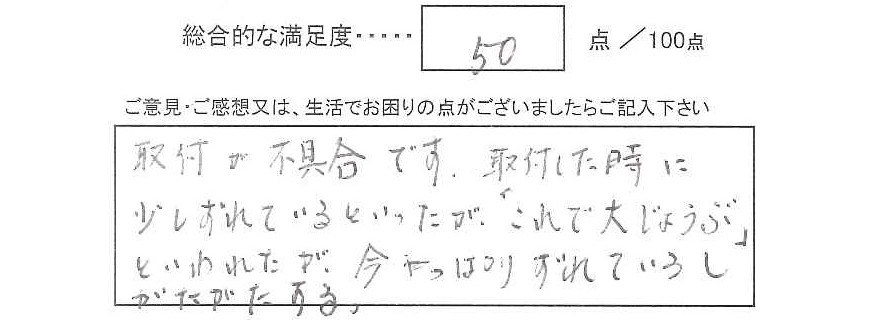 総合的な満足度・・・・・ 50 点 ／100点
ご意見・ご感想又は、生活でお困りの点がございましたらご記入下さい
取付が不具合です. 取付した時に
少しずれているといったが、「これで大じょうぶ」
といわれたが、今やっぱりずれているし
がたがたする。